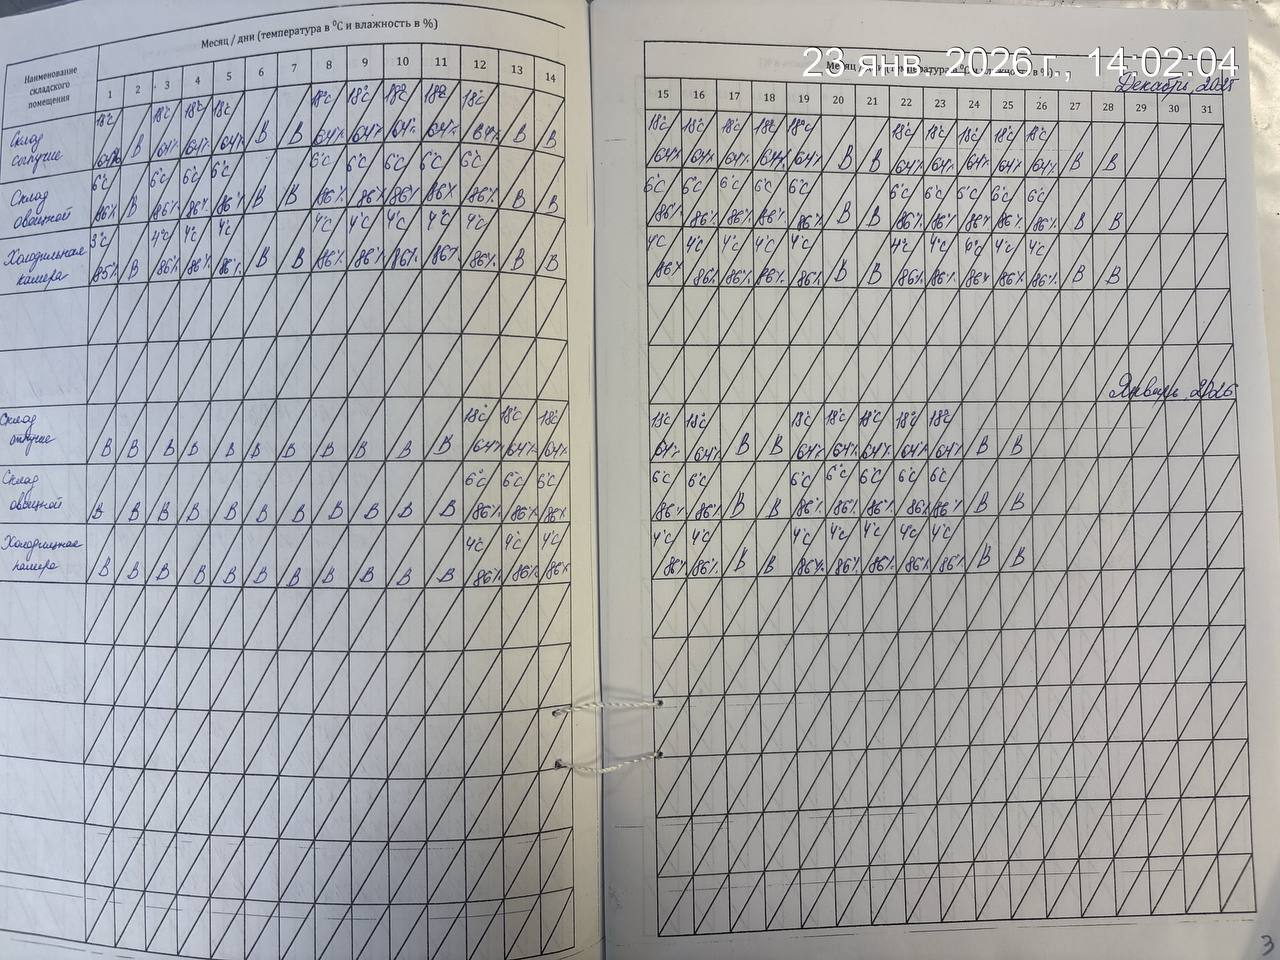 Месяц / дни (температура в ⁰С и влажность в %)
Наименование складского помещения
1 2 3 4 5 6 7 8 9 10 11 12 13 14
18°С 18°С 18°С 18°С 18°С 18°С 18°С 18°С 18°С
Склад
64% В 64% 64% 64% В В 64% 64% 64% 64% 64% В В
6°С 6°С 6°С 6°С 6°С 6°С 6°С 6°С 6°С
Склад
овощной
86% В 86% 86% 86% В В 86% 86% 86% 86% 86% В В
3°С 4°С 4°С 4°С 4°С 4°С 4°С 4°С 4°С
Холодильная
камера
85% В 86% 86% 86% В В 86% 86% 86% 86% 86% В В
Склад
18°С 18°С 18°С
В В В В В В В В В В В 64% 64% 64%
Склад
овощной
6°С 6°С 6°С
В В В В В В В В В В В 86% 86% 86%
Холодильная
камера
4°С 4°С 4°С
В В В В В В В В В В В 86% 86% 86%
23 янв. 2026 г., 14:02:04
Декабрь 2025
15 16 17 18 19 20 21 22 23 24 25 26 27 28 29 30 31
18°С 18°С 18°С 18°С 18°С 18°С 18°С 18°С 18°С 18°С
64% 64% 64% 64% 64% В В 64% 64% 64% 64% 64% В В
6°С 6°С 6°С 6°С 6°С 6°С 6°С 6°С 6°С 6°С
86% 86% 86% 86% 86% В В 86% 86% 86% 86% 86% В В
4°С 4°С 4°С 4°С 4°С 4°С 4°С 4°С 4°С
86% 86% 86% 86% 86% В В 86% 86% 86% 86% 86% В В
Январь 2026
18°С 18°С 18°С 18°С 18°С 18°С 18°С
64% 64% В В 64% 64% 64% 64% 64% В В
6°С 6°С 6°С 6°С 6°С 6°С 6°С
86% 86% В В 86% 86% 86% 86% 86% В В
4°С 4°С 4°С 4°С 4°С 4°С 4°С
86% 86% В В 86% 86% 86% 86% 86% В В
3